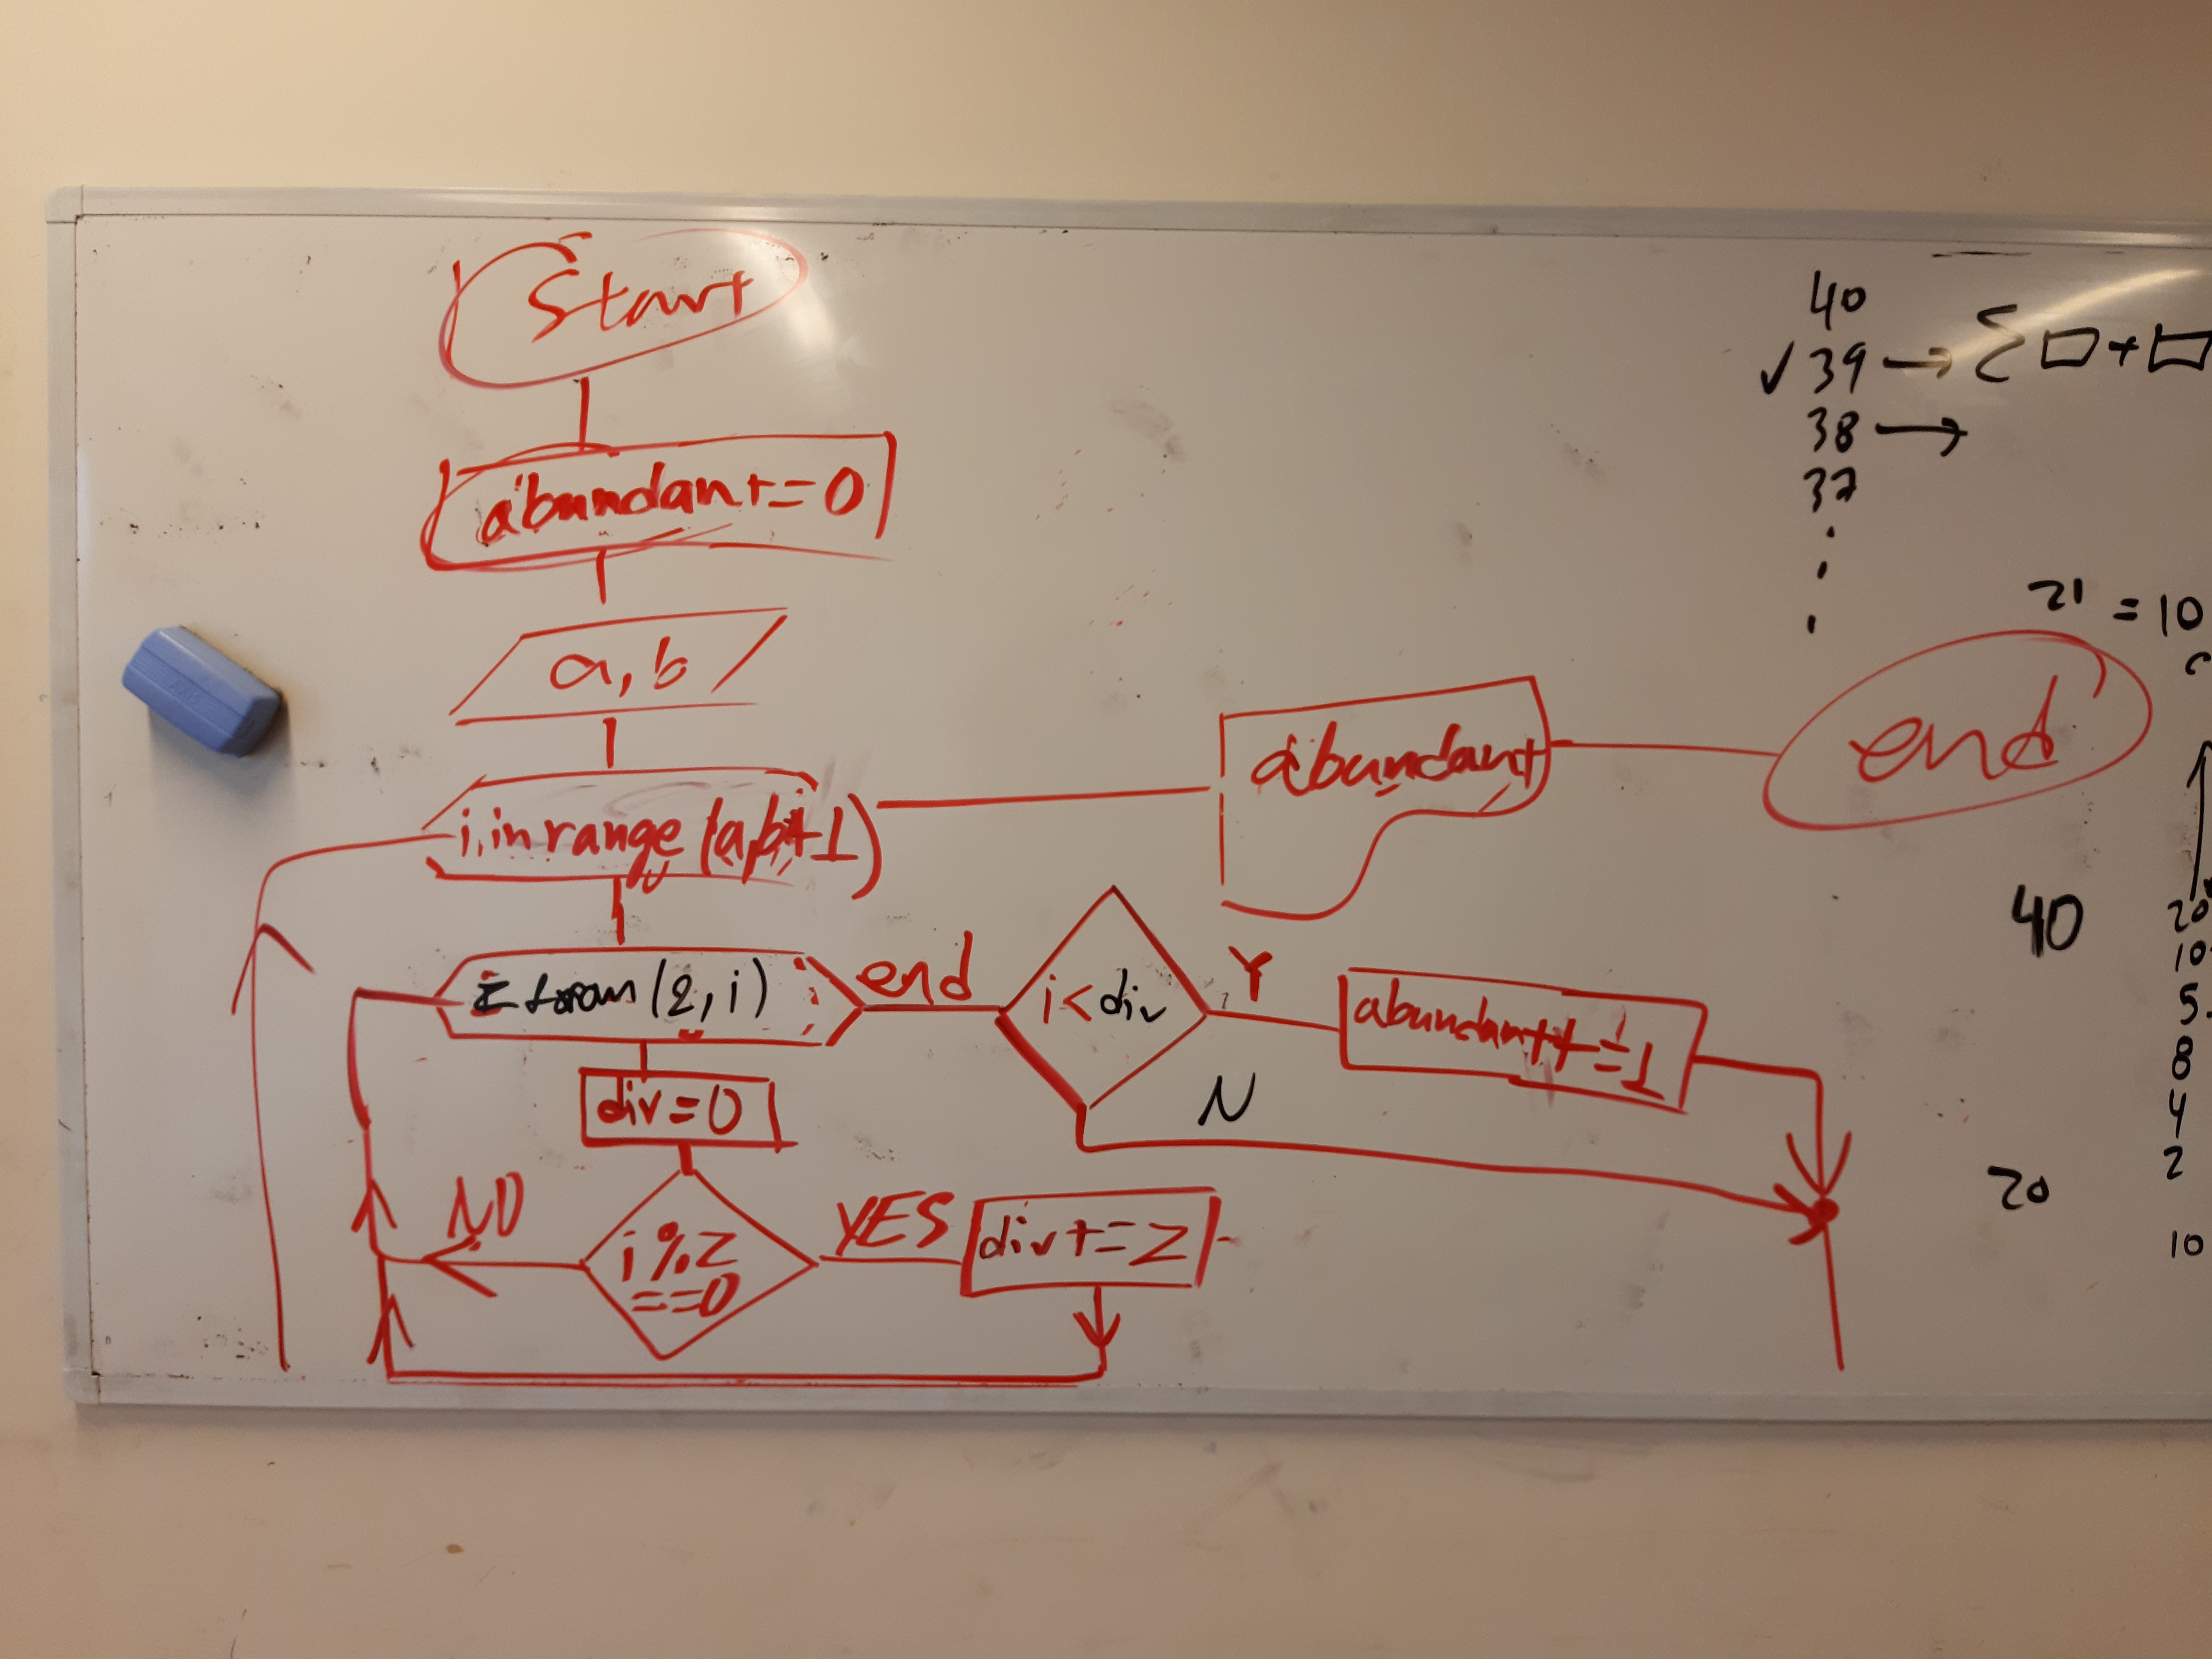 Start
abundant=0
a, b
i in range (a, b+1)
abundant
end
(2, i)
end
i<div
Y
abundant+=1
N
div=0
NO
i%z
==0
YES
div+=z
40
✓ 39 → Σ□+□
38 →
37
.
.
.
21 = 10
40
20
10
5
8
4
2
20
10